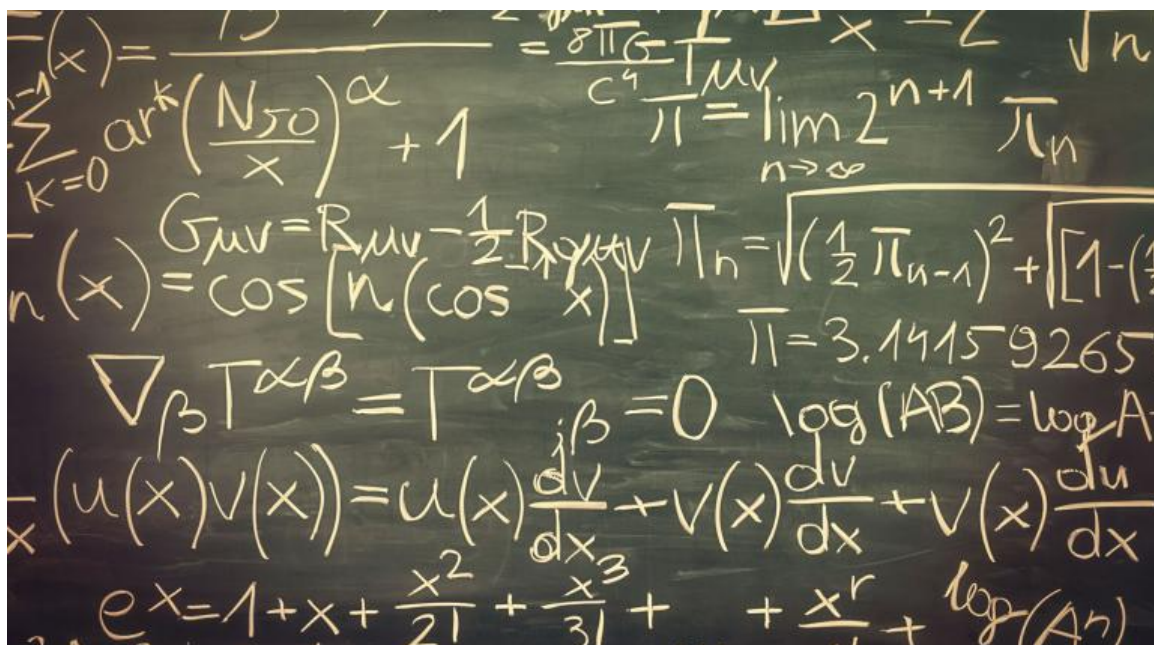 (x) = ——— = 8πG/c⁴ Tμν
x
√n
n-1 ∑ k=0 ar^k (N50/x)^α + 1
π = lim n→∞ 2^(n+1) π_n
Gμν = Rμν - 1/2 R
π_n = √((1/2 π_(n-1))² + √[1-(
n(x) = cos[n(cos⁻¹ x)]
π = 3.14159265
∇_β T^αβ = T^αβ_;β = 0
log(AB) = log A
x (u(x)v(x)) = u(x) dv/dx + v(x) dv/dx + v(x) du/dx
e^x = 1 + x + x²/2! + x³/3! + + x^r +
log(A^n)